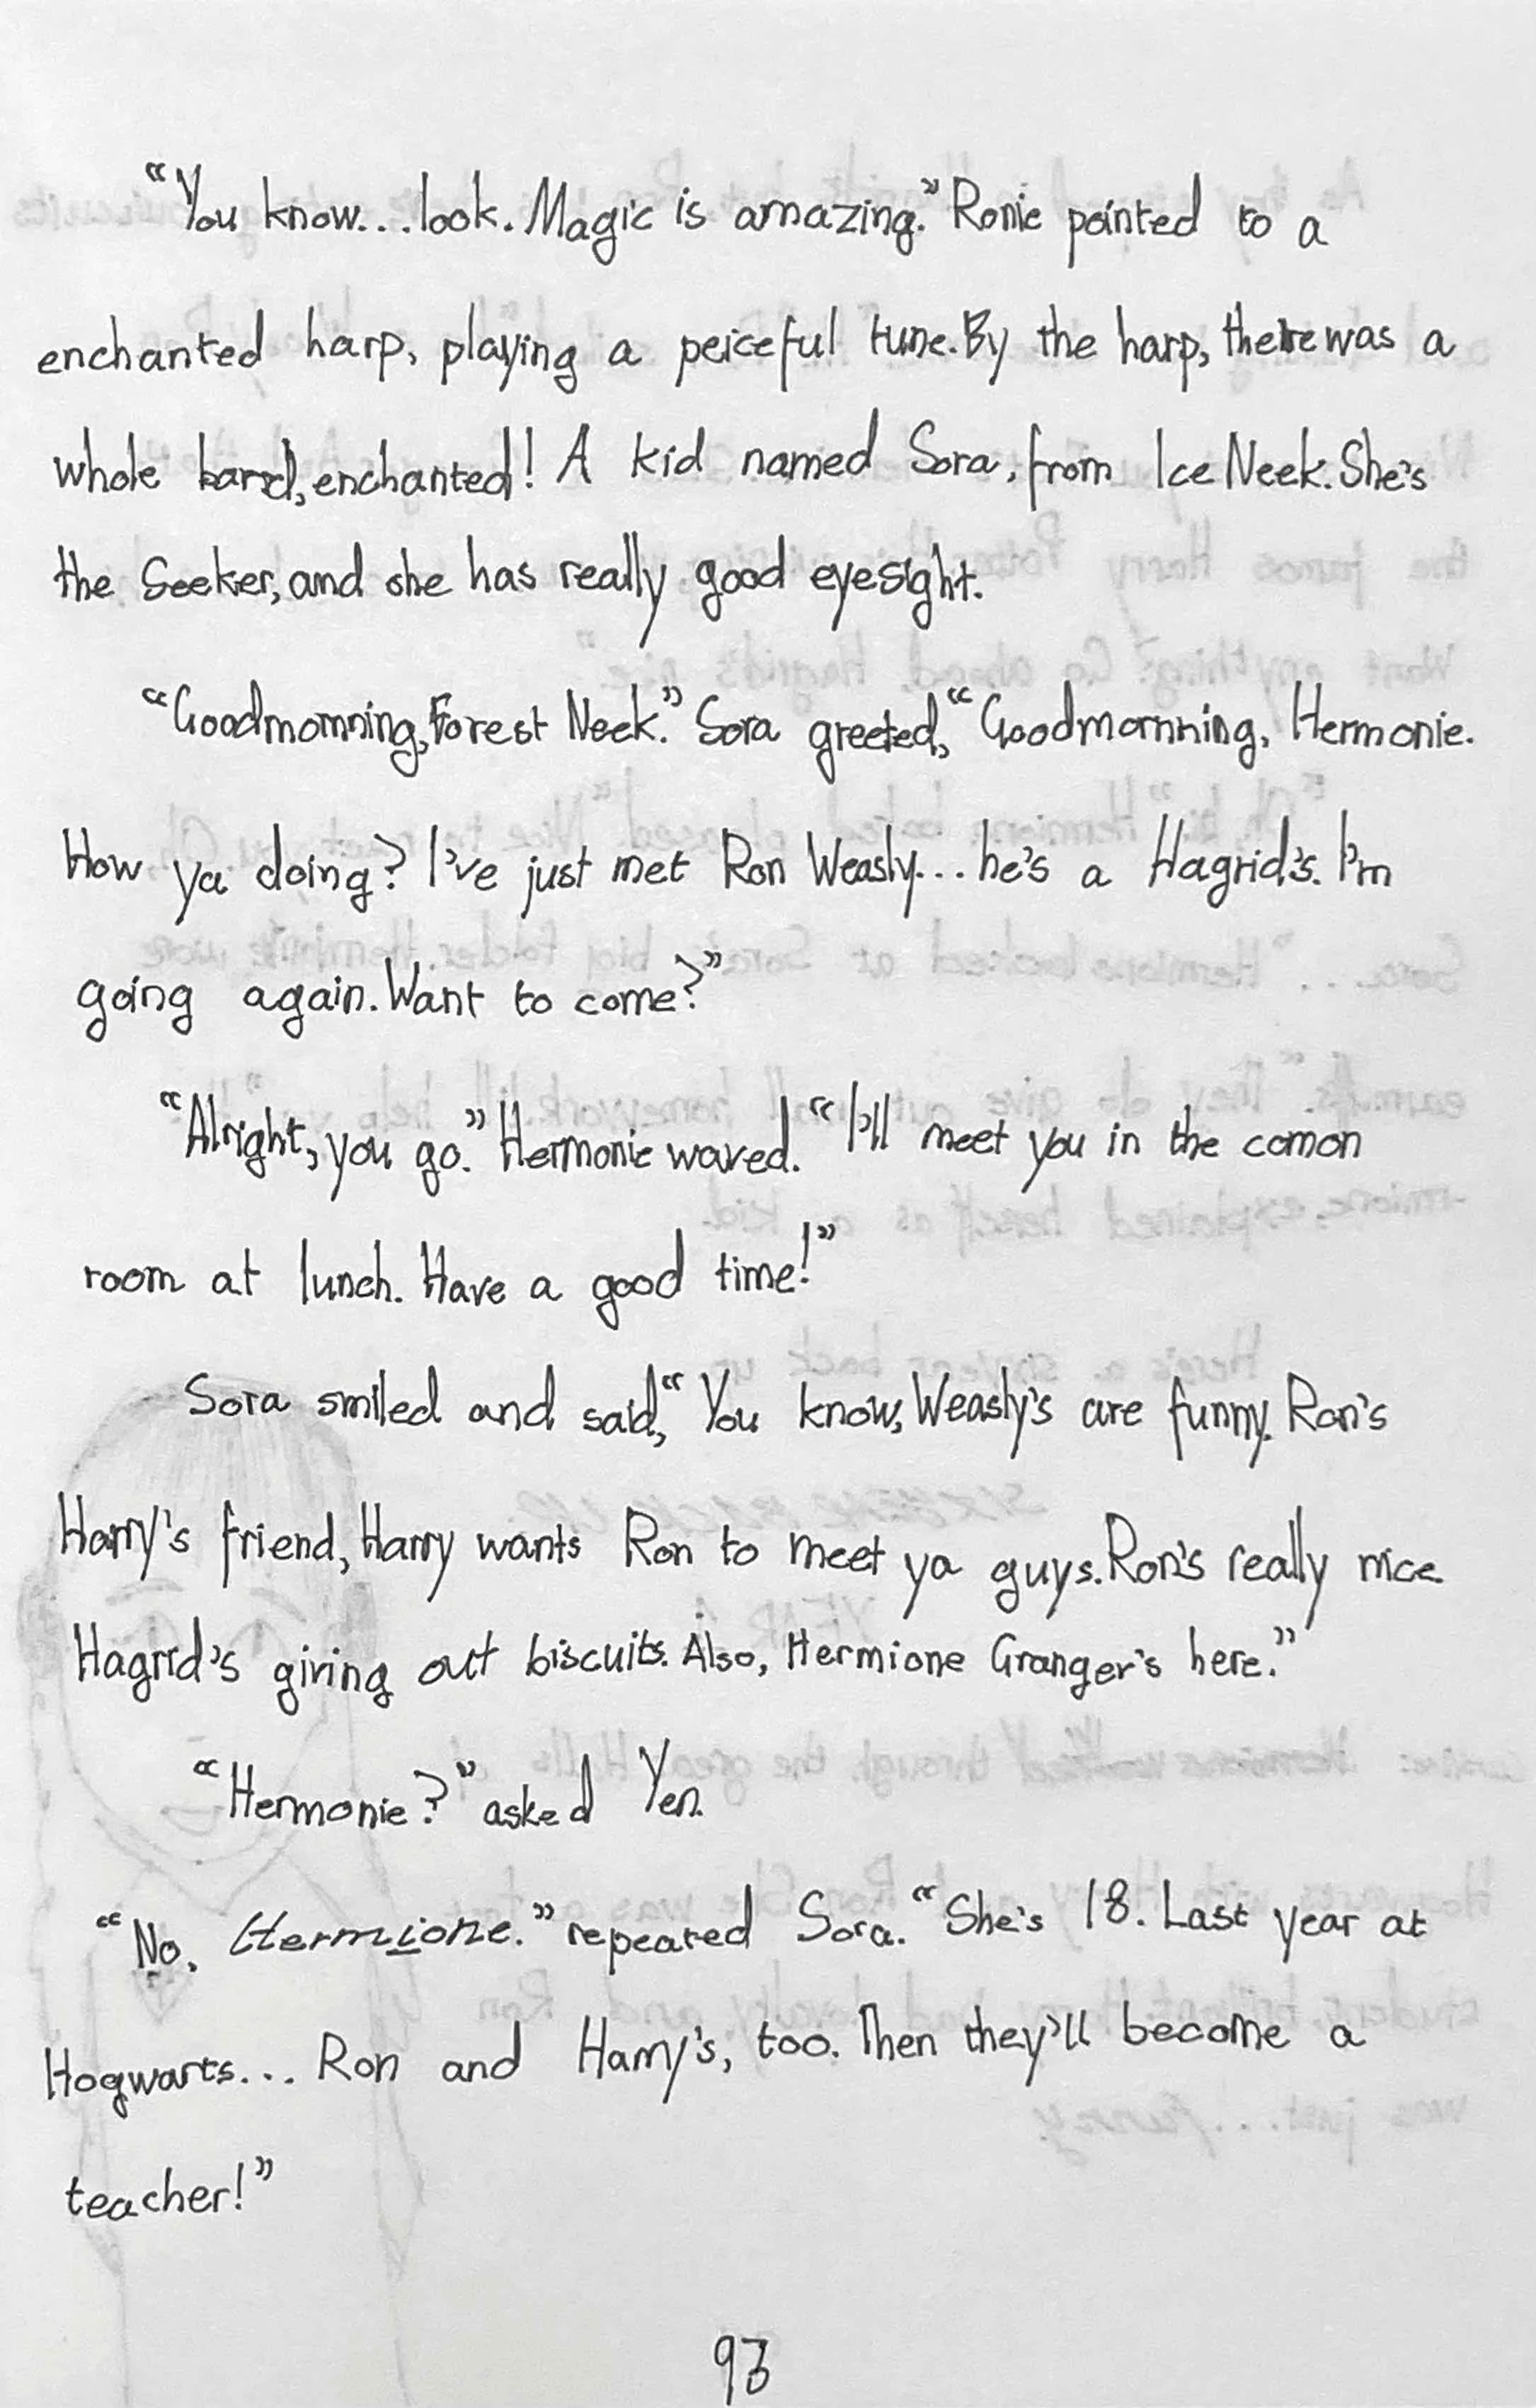 “You know...look. Magic is amazing.” Ronie pointed to a
enchanted harp, playing a peiceful tune. By the harp, there was a
whole band, enchanted! A kid named Sora, from Ice Neek. She's
the Seeker, and she has really good eyesight.
“Goodmornning, Forest Neek.” Sora greeted, “Goodmornning, Hermonie.
How ya doing? I've just met Ron Weasly... he's a Hagrid's. I'm
going again. Want to come?”
“Alright, you go.” Hermonie waved. “I'll meet you in the comon
room at lunch. Have a good time!”
Sora smiled and said, “You know, Weasly's are funny. Ron's
Harry's friend, Harry wants Ron to meet ya guys. Ron's really nice.
Hagrid's giving out biscuits. Also, Hermione Granger's here.”
“Hermonie?” asked Yen.
“No. Hermione.” repeated Sora. “She's 18. Last year at
Hogwarts... Ron and Harry's, too. Then they'll become a
teacher!”
93